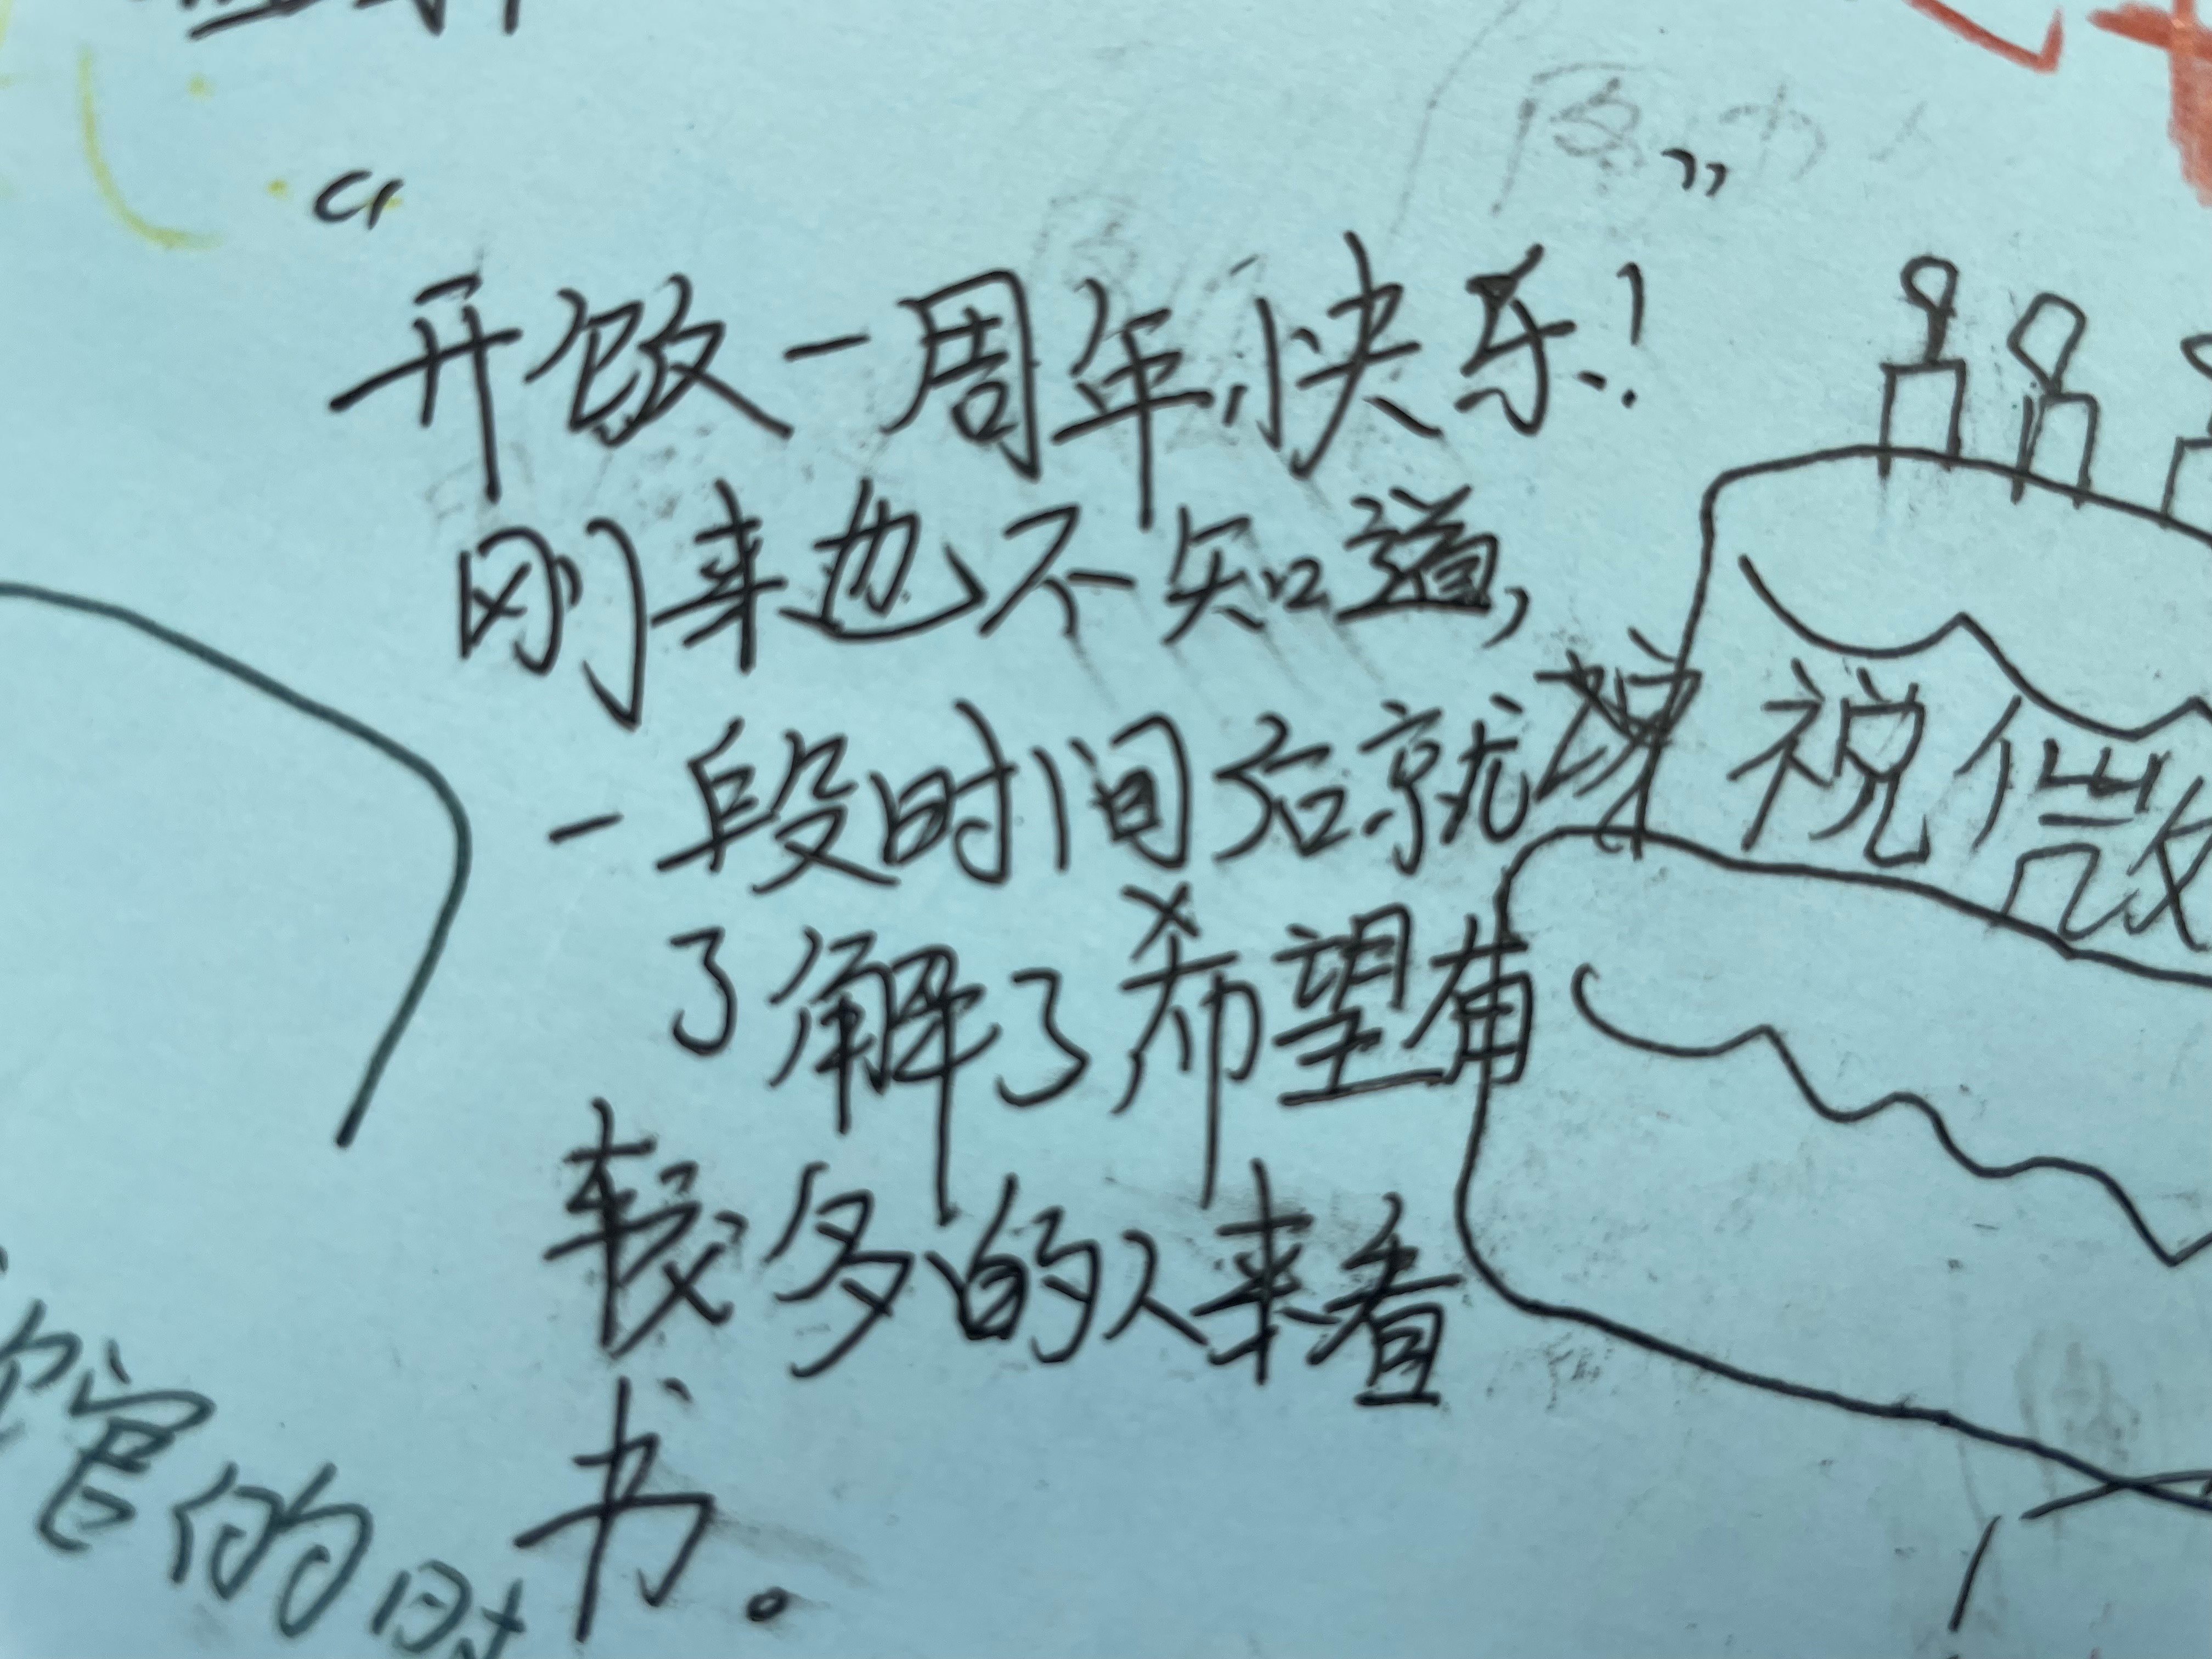 “ ”
开饭一周年,快乐!
刚来也不知道,
一段时间后就
了解了希望有
较多的人来看
书。
祝微
馆的时